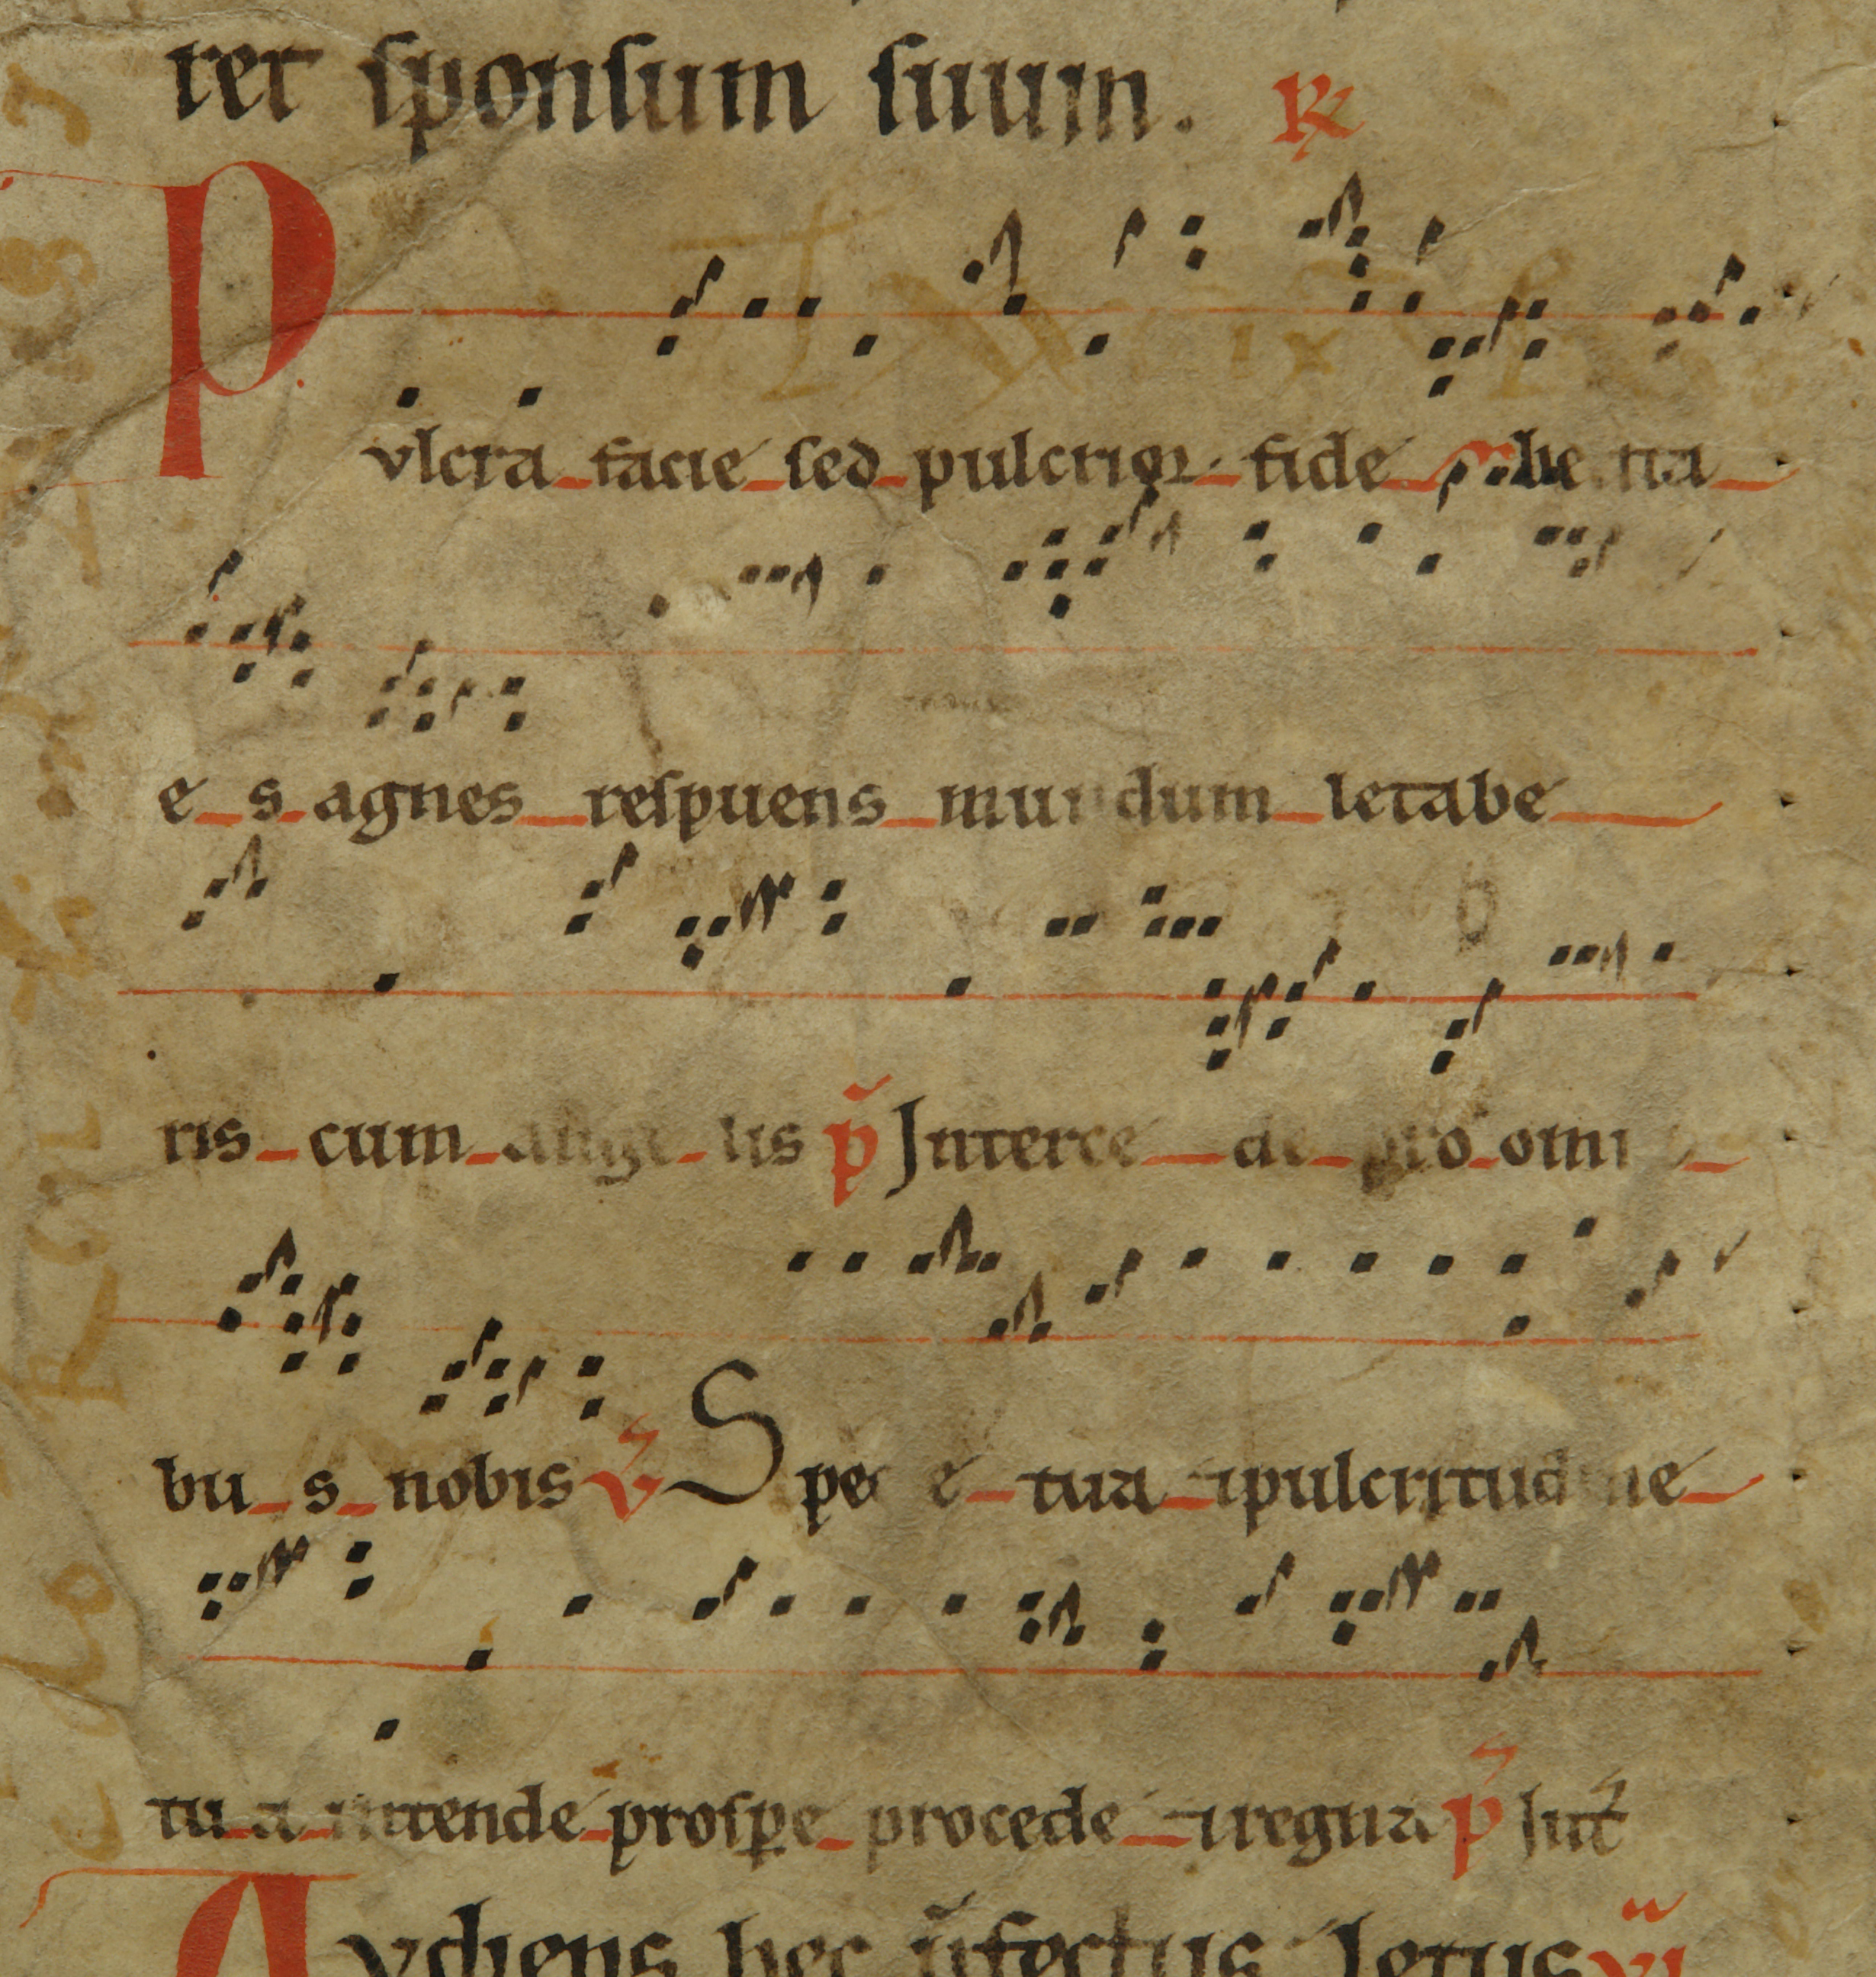 ret sponsum suum. R
Pvlcra facie sed pulcrior fide be ata
e s agnes respuens mundum letabe
ris cum ange lis p Interce de pro omni
bu s nobis V Speci e tua ⁊pulcritudine
tu a intende prospe procede ⁊regna p Int
Avdiens hec p̄fectus letus vi